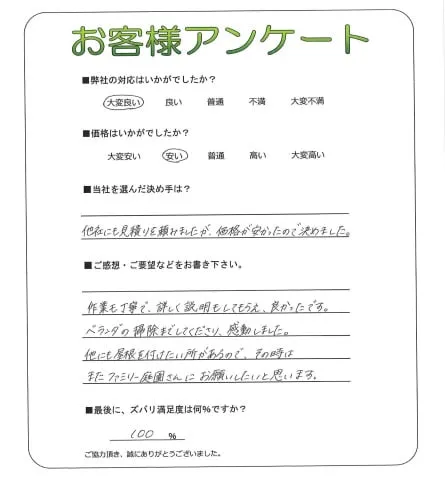 お客様アンケート
■弊社の対応はいかがでしたか？
大変良い 良い 普通 不満 大変不満
■価格はいかがでしたか？
大変安い 安い 普通 高い 大変高い
■当社を選んだ決め手は？
他社にも見積りを頼みましたが、価格が安かったので決めました。
■ご感想・ご要望などをお書き下さい。
作業も丁寧で、詳しく説明もしてもらえ、良かったです。
ベランダの掃除までしてくださり、感動しました。
他にも屋根を付けたい所があるので、その時は
またファミリー庭園さんにお願いしたいと思います。
■最後に、ズバリ満足度は何％ですか？
100 ％
ご協力頂き、誠にありがとうございました。